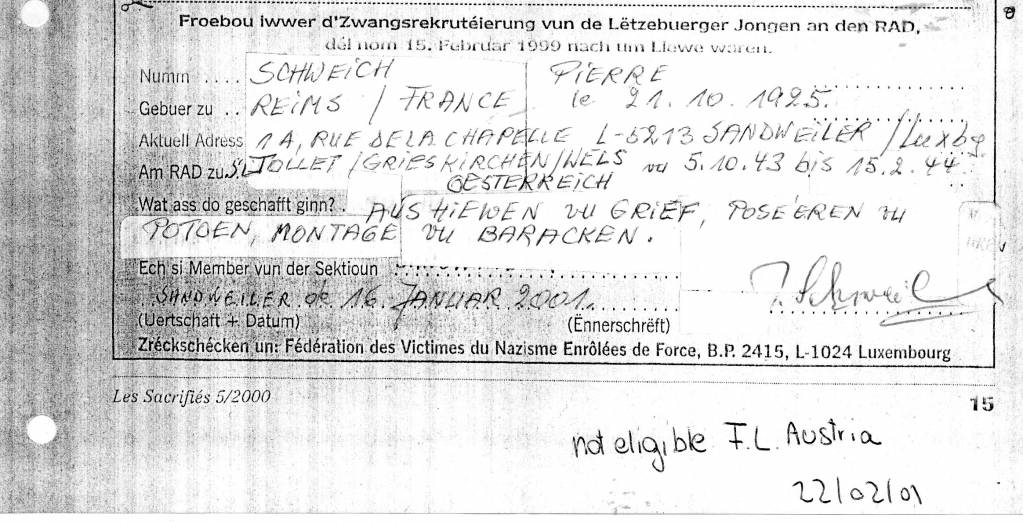 Froebou iwwer d'Zwangsrekrutéierung vun de Lëtzebuerger Jongen an den RAD,
déi nom 15. Februar 1999 nach um Liewe waren.
Numm .... SCHWEICH PIERRE
Gebuer zu .. REIMS / FRANCE le 21.10.1925.
Aktuell Adress 1A, RUE DE LA CHAPELLE L-5213 SANDWEILER / Luxbg
Am RAD zu St TOLLET / GRIESKIRCHEN / WELS vu 5.10.43 bis 15.2.44
OESTERREICH
Wat ass do geschafft ginn? . AUSHIEWEN VU GRIEF, POSÉEREN VU
POTOEN, MONTAGE VU BARACKEN.
Ech si Member vun der Sektioun
SANDWEILER de 16. JANUAR 2001.
(Uertschaft + Datum) (Ënnerschrëft)
Zréckschécken un: Fédération des Victimes du Nazisme Enrôlées de Force, B.P. 2415, L-1024 Luxembourg
Les Sacrifiés 5/2000 15
not eligible F.L. Austria
22/02/01